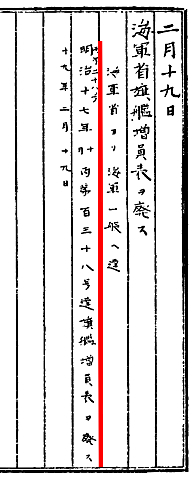 二月十九日
海軍省旗艦増員表ヲ廃ス
海軍省ヨリ海軍一般ヘ達
明治十七年十月丙第百三十八号達旗艦増員表ヲ廃ス
十九年二月十九日